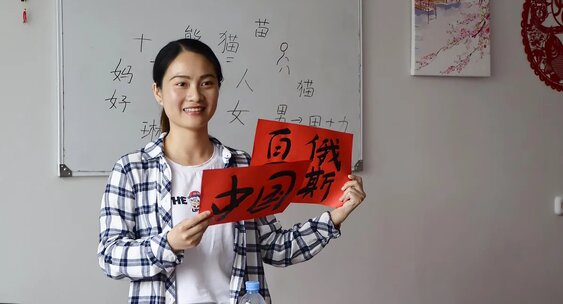 十 熊 猫 苗
妈 人 猫
好 女 男→田+力
百 俄斯
中国
THE